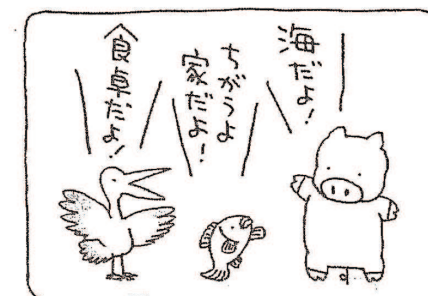 海だよ！
ちがうよ
家だよ！
食卓だよ！